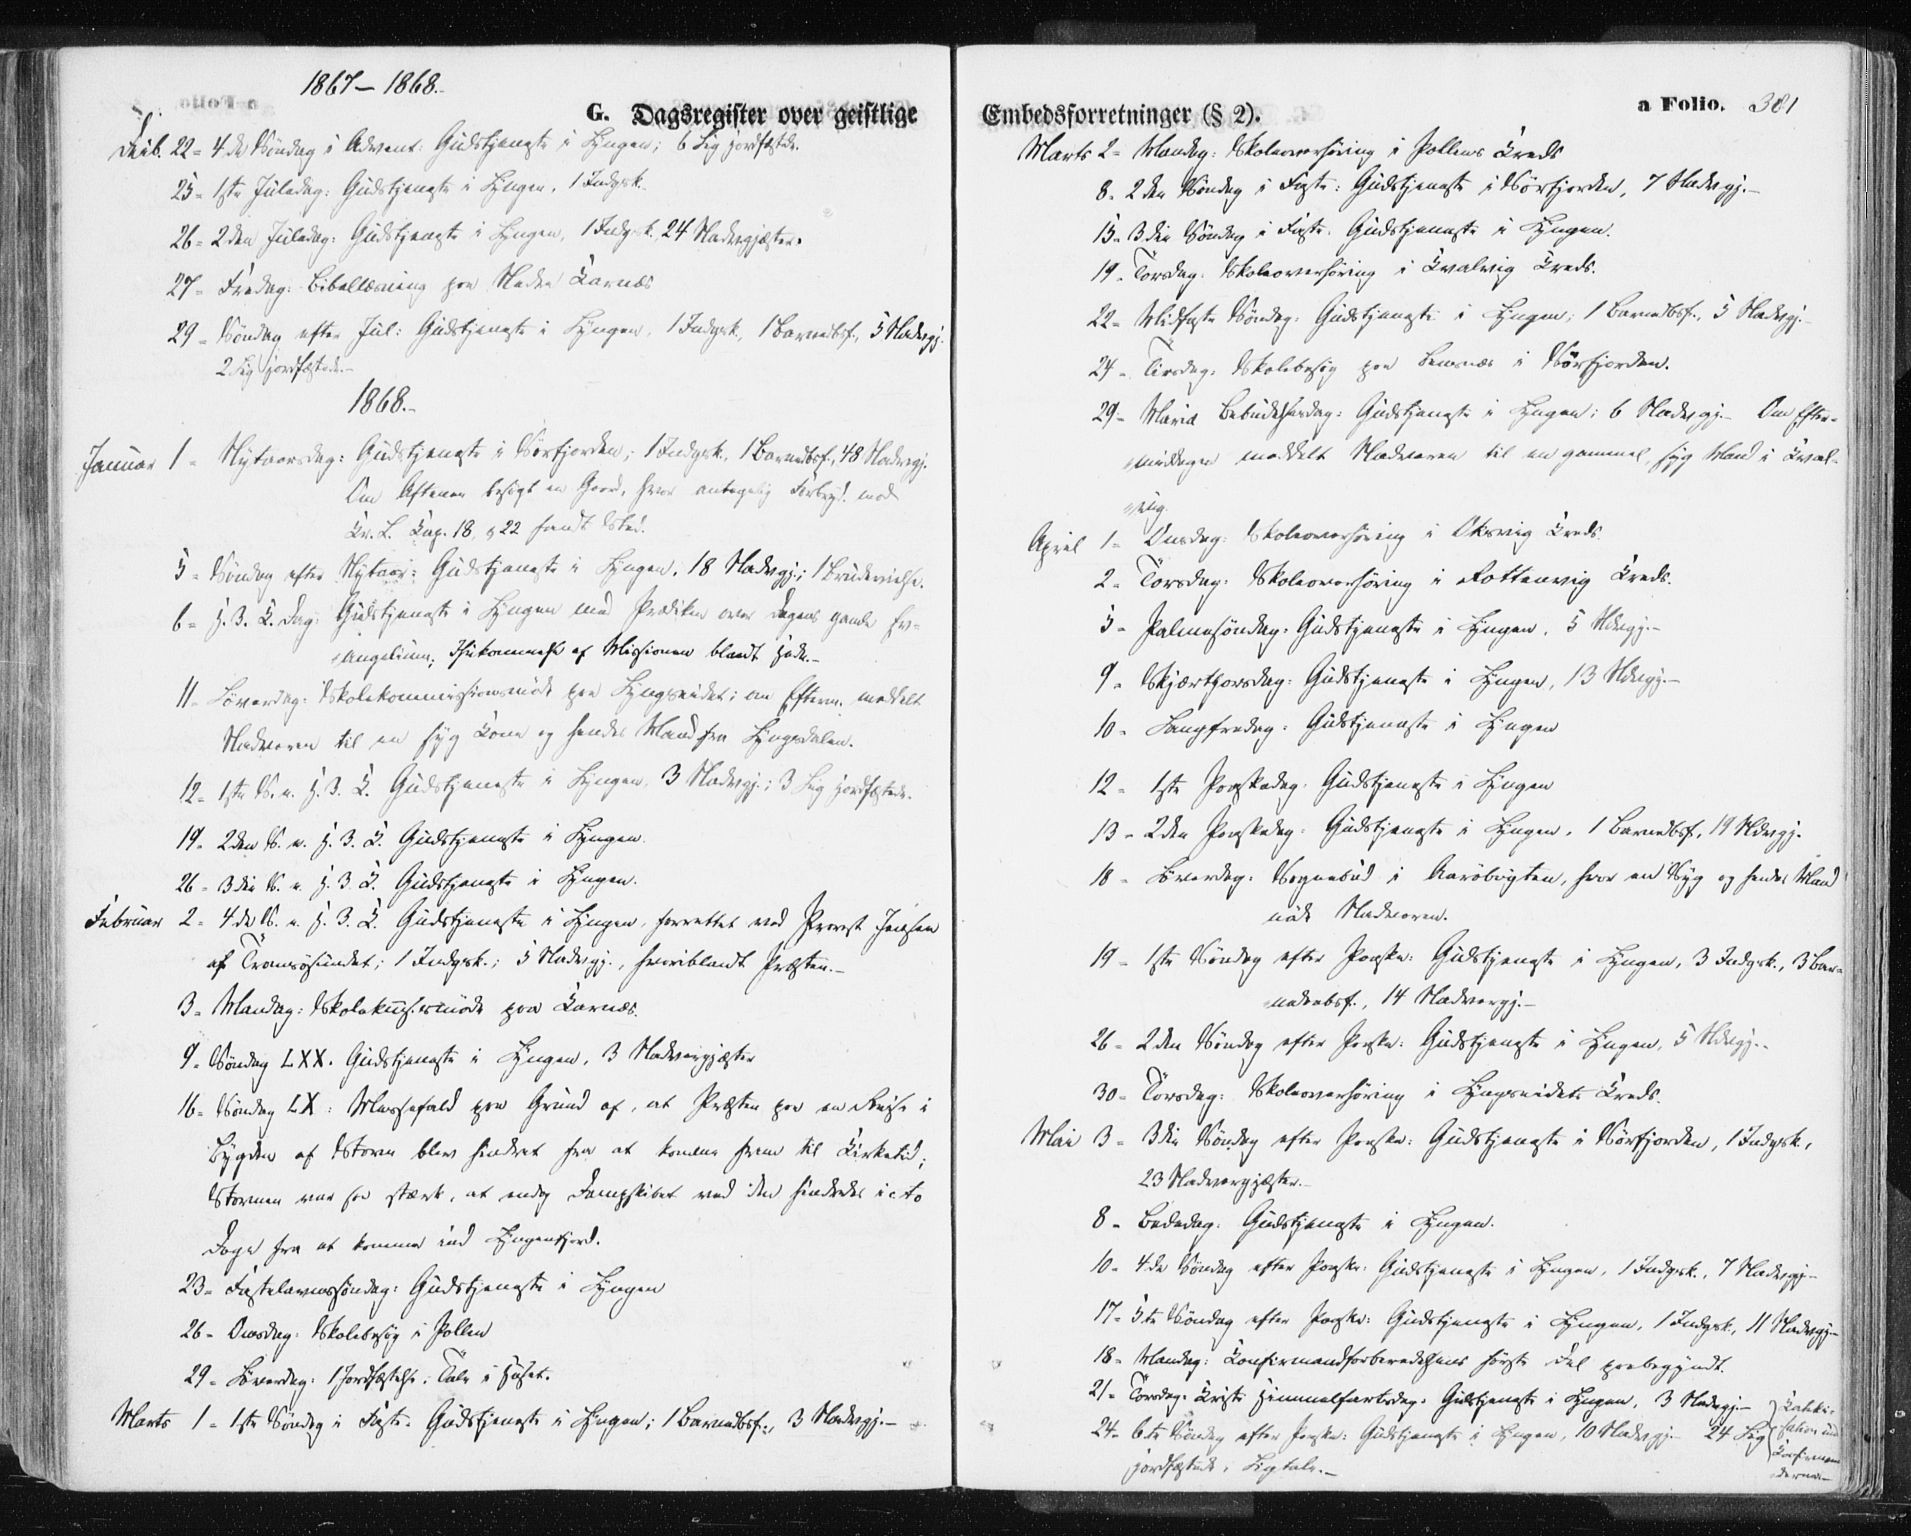 1867–1868.
G. Dagsregister over geistlige
Decb. 22 = 4de Söndag i Advent: Gudstjeneste i Lyngen; 6 Lig jordfæstede.
25 = 1ste Juledag: Gudstjeneste i Lyngen, 1 Indgsk.
26 = 2den Juledag: Gudstjeneste i Lyngen, 1 Indgsk. 24 Nadvgjæster.
27 = Fredag: Bibellæsning paa Karnæs
29 = Söndag efter Jul: Gudstjeneste i Lyngen, 1 Indgsk., 1 Barnedbf., 5 Nadvgj.
2 Lig jordfæstede.–
1868.–
Januar 1 = Nytaarsdag: Gudstjeneste i Sörfjorden; 1 Indgsk. 1 Barnedbsf., 48 Nadvgj.
Om Aftenen besögt en Gaard, hvor antagelig Forbryd. mod
Kr. L. Cap. 18, § 22 fandt Sted.
5 = Söndag efter Nytaar: Gudstjeneste i Lyngen, 18 Nadvgj.; 1 Brudevielse.
6 = H. 3. K. Dag: Gudstjeneste i Lyngen med Prædiken over Dagens gamle Ev-
angelium; Ihukommelse af Missionen blandt Hedn.–
11 = Löverdag: Skolekommissionsmöde paa Lyngseidet; om Efterm. meddelt
Nadveren til en syg Kone og hendes Mand fra Lyngsdalen.
12 = 1ste S. e. H. 3. K. Gudstjeneste i Lyngen, 3 Nadvgj.; 3 Lig jordfæstede.
19 = 2den S. e. H. 3. K. Gudstjeneste i Lyngen.
26 = 3die S. e. H. 3. K. Gudstjeneste i Lyngen.
Februar 2 = 4de S. e. H. 3. K. Gudstjeneste i Lyngen, forrettet ved Provst Jensen
af Tromsösundet; 1 Indgsk.; 5 Nadvgj., hvoriblandt Præsten.–
3 = Mandag: möde paa Karnæs.
9 = Söndag LXX. Gudstjeneste i Lyngen, 3 Nadvergjæster
16 = Söndag LX: Messefald paa Grund af, at Præsten paa en Reise i
Bygden af Storm blev hindret fra at komme frem til Kirketid;
Stormen var saa stærk, at endog Dampskibet ved den hindredes i to
Dage fra at komme ind Lyngenfjord.
23 = Fastelavnssöndag: Gudstjeneste i Lyngen
26 = Onsdag: Skolebesög i Pollen
29 = Löverdag: 1 Jordfæstelse. Tale i Huset.
Marts 1 = 1ste Söndag i Faste. Gudstjeneste i Lyngen; 1 Barnedbsf., 3 Nadvgj.–
Embedsforretninger (§ 2).
a Folio. 381
Marts 2 = Mandag: Skoleoverhöring i Pollens Kreds
8 = 2den Söndag i Faste: Gudstjeneste i Sörfjorden, 7 Nadvgj.–
15 = 3die Söndag i Faste. Gudstjeneste i Lyngen.
19 = Torsdag: Skoleoverhöring i Kvalvig Kreds.
22 = Midfaste Söndag: Gudstjeneste i Lyngen; 1 Barnedbsf., 5 Nadvgj.–
24 = Tirsdag: Skolebesög paa i Sörfjorden.
29 = Maria Bebudelsesdag: Gudstjeneste i Lyngen; 6 Nadvgj.– Om Efter-
middagen meddelt Nadveren til en gammel, syg Mand i Kval-
vig.
April 1 = Onsdag: Skoleoverhöring i Oksvig Kreds.
2 = Torsdag: Skoleoverhöring i Rottenvig Kreds.
5 = Palmesöndag: Gudstjeneste i Lyngen, 5 Ndvgj.–
9 = Skjærthorsdag: Gudstjeneste i Lyngen, 13 Ndvgj.–
10 = Langfredag: Gudstjeneste i Lyngen
12 = 1ste Paaskedag: Gudstjeneste i Lyngen
13 = 2den Paaskedag: Gudstjeneste i Lyngen, 1 Barnedbsf., 19 Ndvgj.
18 = Löverdag: Sognebud i Aaröbugten, hvor en Syg og hendes Mand
nöde Nadveren.
19 = 1ste Söndag efter Paaske: Gudstjeneste i Lyngen, 3 Indgsk., 3 Bar-
nedaabsf., 14 Nadvergj.–
26 = 2den Söndag efter Paaske: Gudstjeneste i Lyngen, 5 Ndvgj.–
30 = Torsdag: Skoleoverhöring i Lyngseidets Kreds.
Mai 3 = 3die Söndag efter Paaske: Gudstjeneste i Sörfjorden, 1 Indgsk.,
23 Nadvergjæster.–
8 = Bededag: Gudstjeneste i Lyngen.
10 = 4de Söndag efter Paaske: Gudstjeneste i Lyngen, 1 Indgsk., 7 Nadvgj.–
17 = 5te Söndag efter Paaske: Gudstjeneste i Lyngen, 1 Indgsk., 11 Nadvgj.–
18 = Mandag: Konfirmandforberedelsens förste Del paabegyndt.
21 = Torsdag: Kristi Himmelfartsdag: Gudstjeneste i Lyngen, 3 Nadvgj.–
24 = 6te Söndag efter Paaske: Gudstjeneste i Lyngen, 10 Nadvgj.– 24 Lig
jordfæstede, Ligtale.–
Kateki-
sation med
Konfirman
derne–